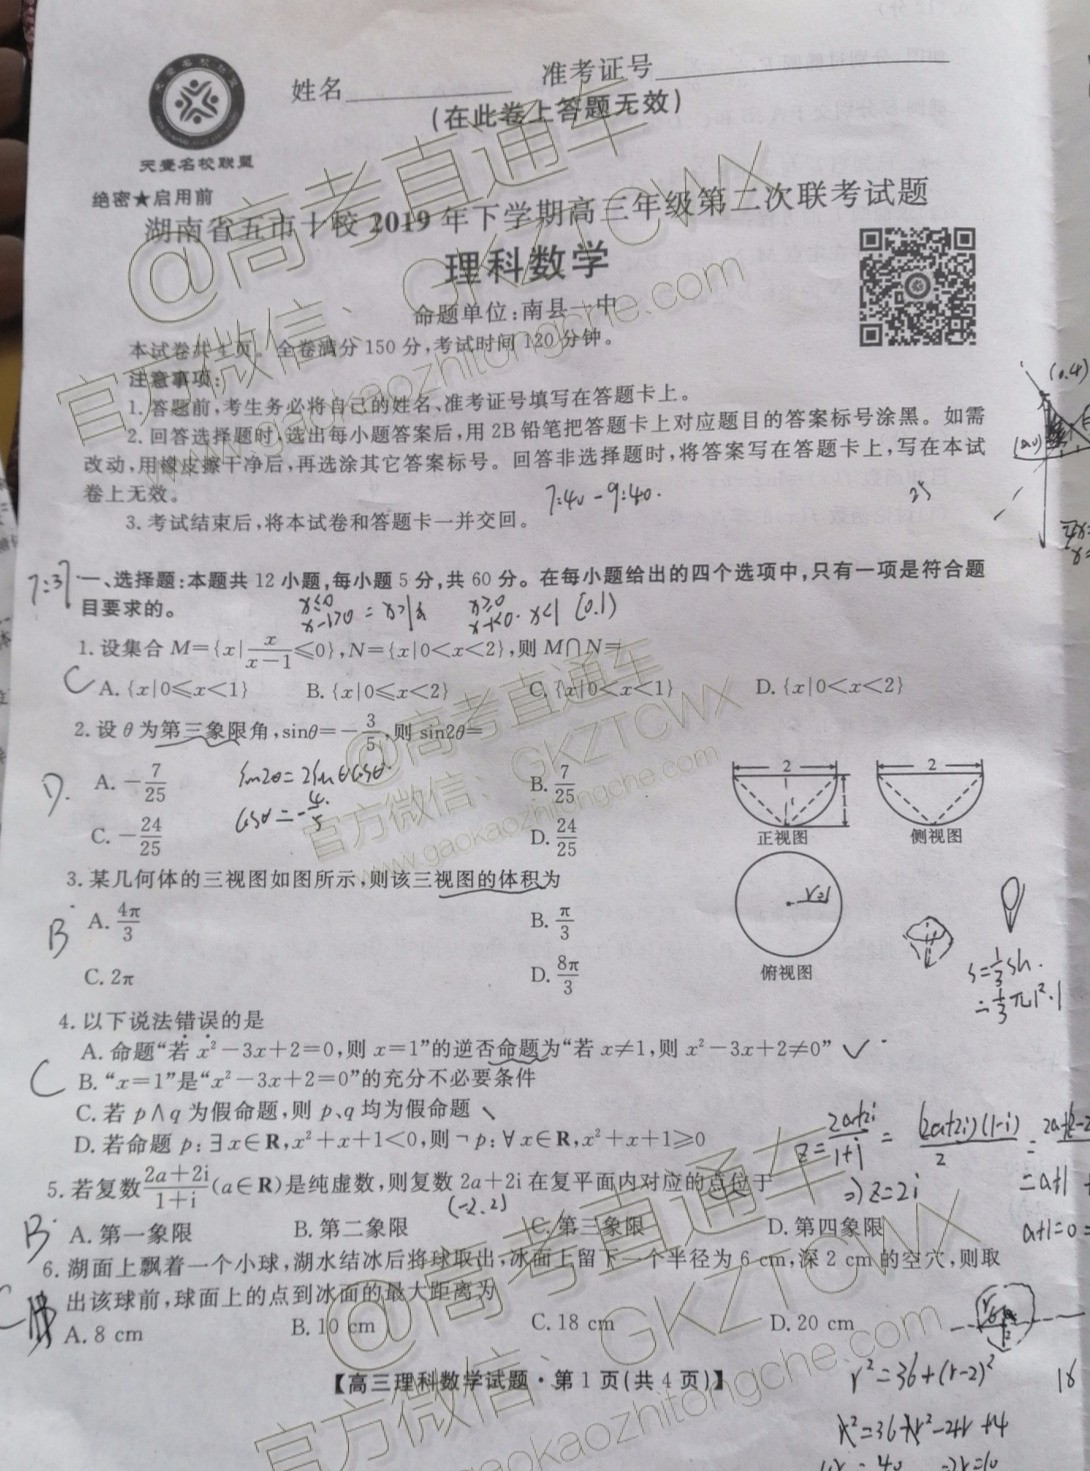 天壹名校联盟
姓名
准考证号
(在此卷上答题无效)
绝密★启用前
湖南省五市十校2019年下学期高三年级第二次联考试题
理科数学
命题单位:南县一中
本试卷共4页。全卷满分150分,考试时间120分钟。
注意事项:
1.答题前,考生务必将自己的姓名、准考证号填写在答题卡上。
2.回答选择题时,选出每小题答案后,用2B铅笔把答题卡上对应题目的答案标号涂黑。如需
改动,用橡皮擦干净后,再选涂其它答案标号。回答非选择题时,将答案写在答题卡上,写在本试
卷上无效。
7:40-9:40.
25
3.考试结束后,将本试卷和答题卡一并交回。
7:37
一、选择题:本题共12小题,每小题5分,共60分。在每小题给出的四个选项中,只有一项是符合题
目要求的。
1.设集合M={x|x/(x-1)≤0},N={x|0<x<2},则M∩N=
C
A.{x|0≤x<1} B.{x|0≤x<2} C.{x|0<x<1} D.{x|0<x<2}
2.设θ为第三象限角,sinθ=-3/5,则sin2θ=
D.
A.-7/25 B.7/25
sin2θ=2sinθcosθ.
cosθ=-4/5
C.-24/25 D.24/25
2
1
正视图
2
侧视图
3.某几何体的三视图如图所示,则该三视图的体积为
B
A.4π/3 B.π/3
C.2π D.8π/3
r=1
俯视图
s=1/3sh.
=1/3π1².1
4.以下说法错误的是
A.命题“若x²-3x+2=0,则x=1”的逆否命题为“若x≠1,则x²-3x+2≠0”
C
B.“x=1”是“x²-3x+2=0”的充分不必要条件
C.若p∧q为假命题,则p、q均为假命题
D.若命题p:∃x∈R,x²+x+1<0,则¬p:∀x∈R,x²+x+1≥0
z=(2a+2i)/(1+i)=(2a+2i)(1-i)/2
⇒z=2i
a+1=0
5.若复数(2a+2i)/(1+i)(a∈R)是纯虚数,则复数2a+2i在复平面内对应的点位于
(-2.2)
B
A.第一象限 B.第二象限 C.第三象限 D.第四象限
6.湖面上飘着一个小球,湖水结冰后将球取出,冰面上留下一个半径为6 cm,深2 cm的空穴,则取
出该球前,球面上的点到冰面的最大距离为
C
A.8 cm B.10 cm C.18 cm D.20 cm
【高三理科数学试题·第1页(共4页)】
r²=36+(r-2)²
18
r²=36+r²-4r+4
@高考直通车
官方微信:GKZTCWX
www.gaokaozhitongche.com
@高考直通车
官方微信:GKZTCWX
www.gaokaozhitongche.com
@高考直通车
官方微信:GKZTCWX
gaokaozhitongche.com